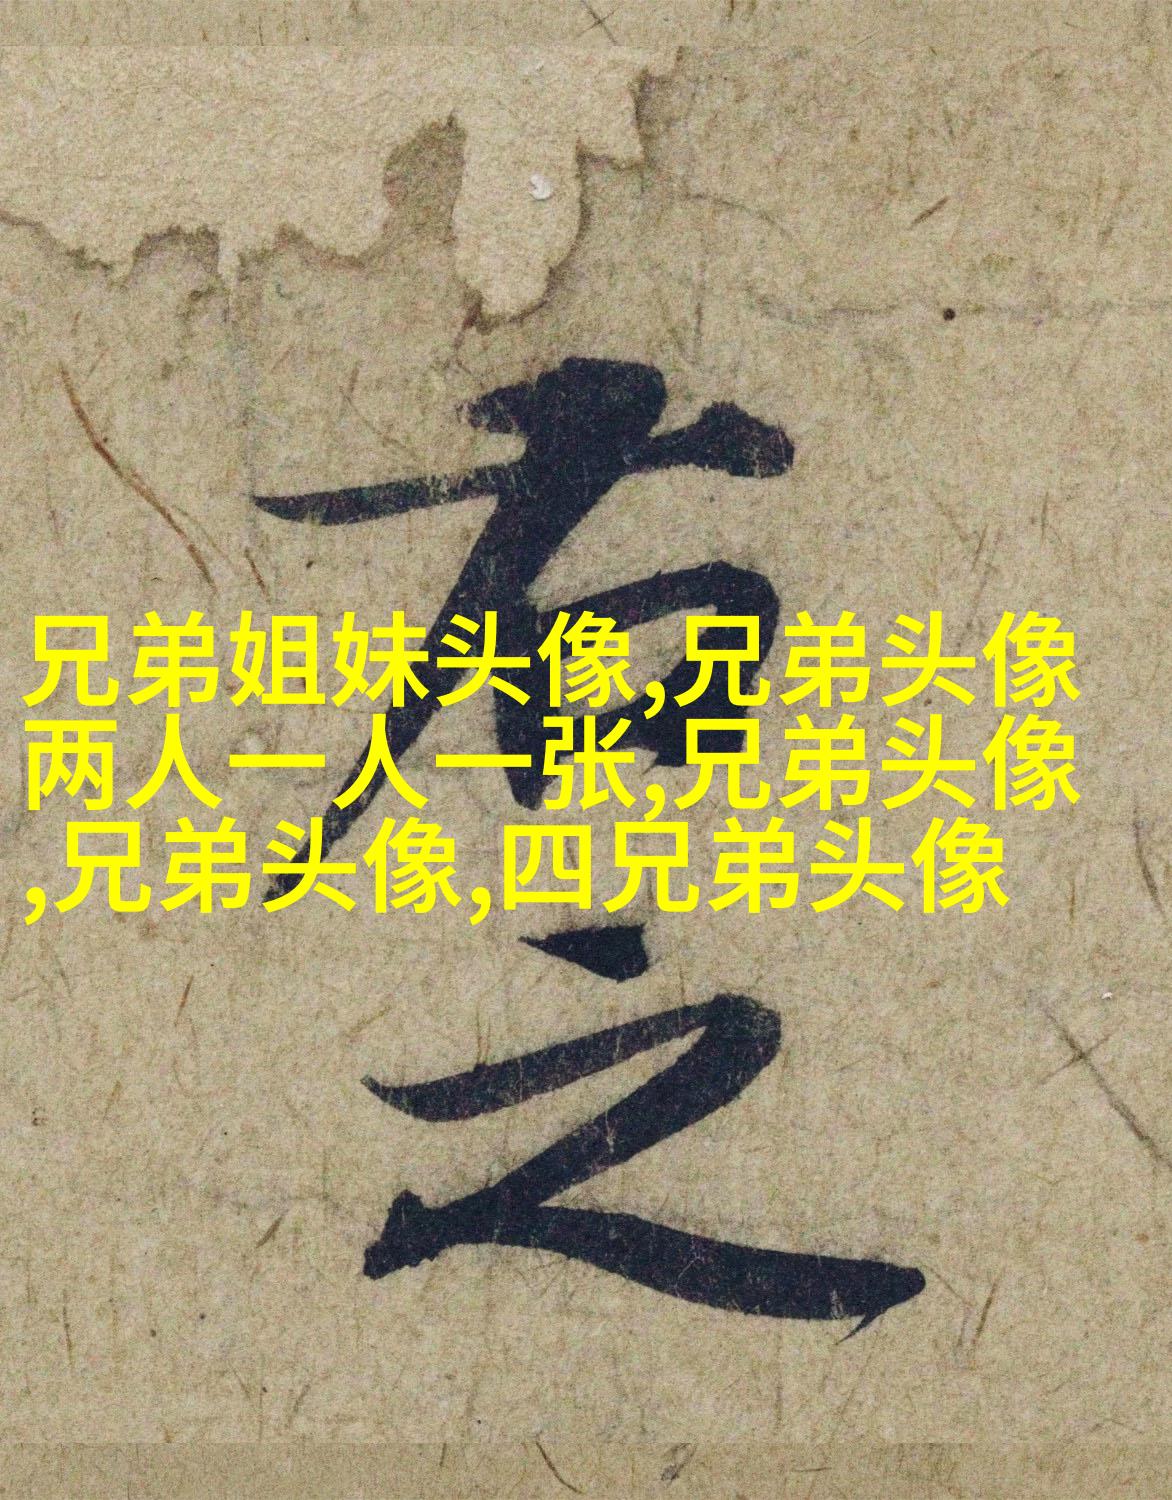 右之
兄弟姐妹头像,兄弟头像
两人一人一张,兄弟头像
,兄弟头像,四兄弟头像